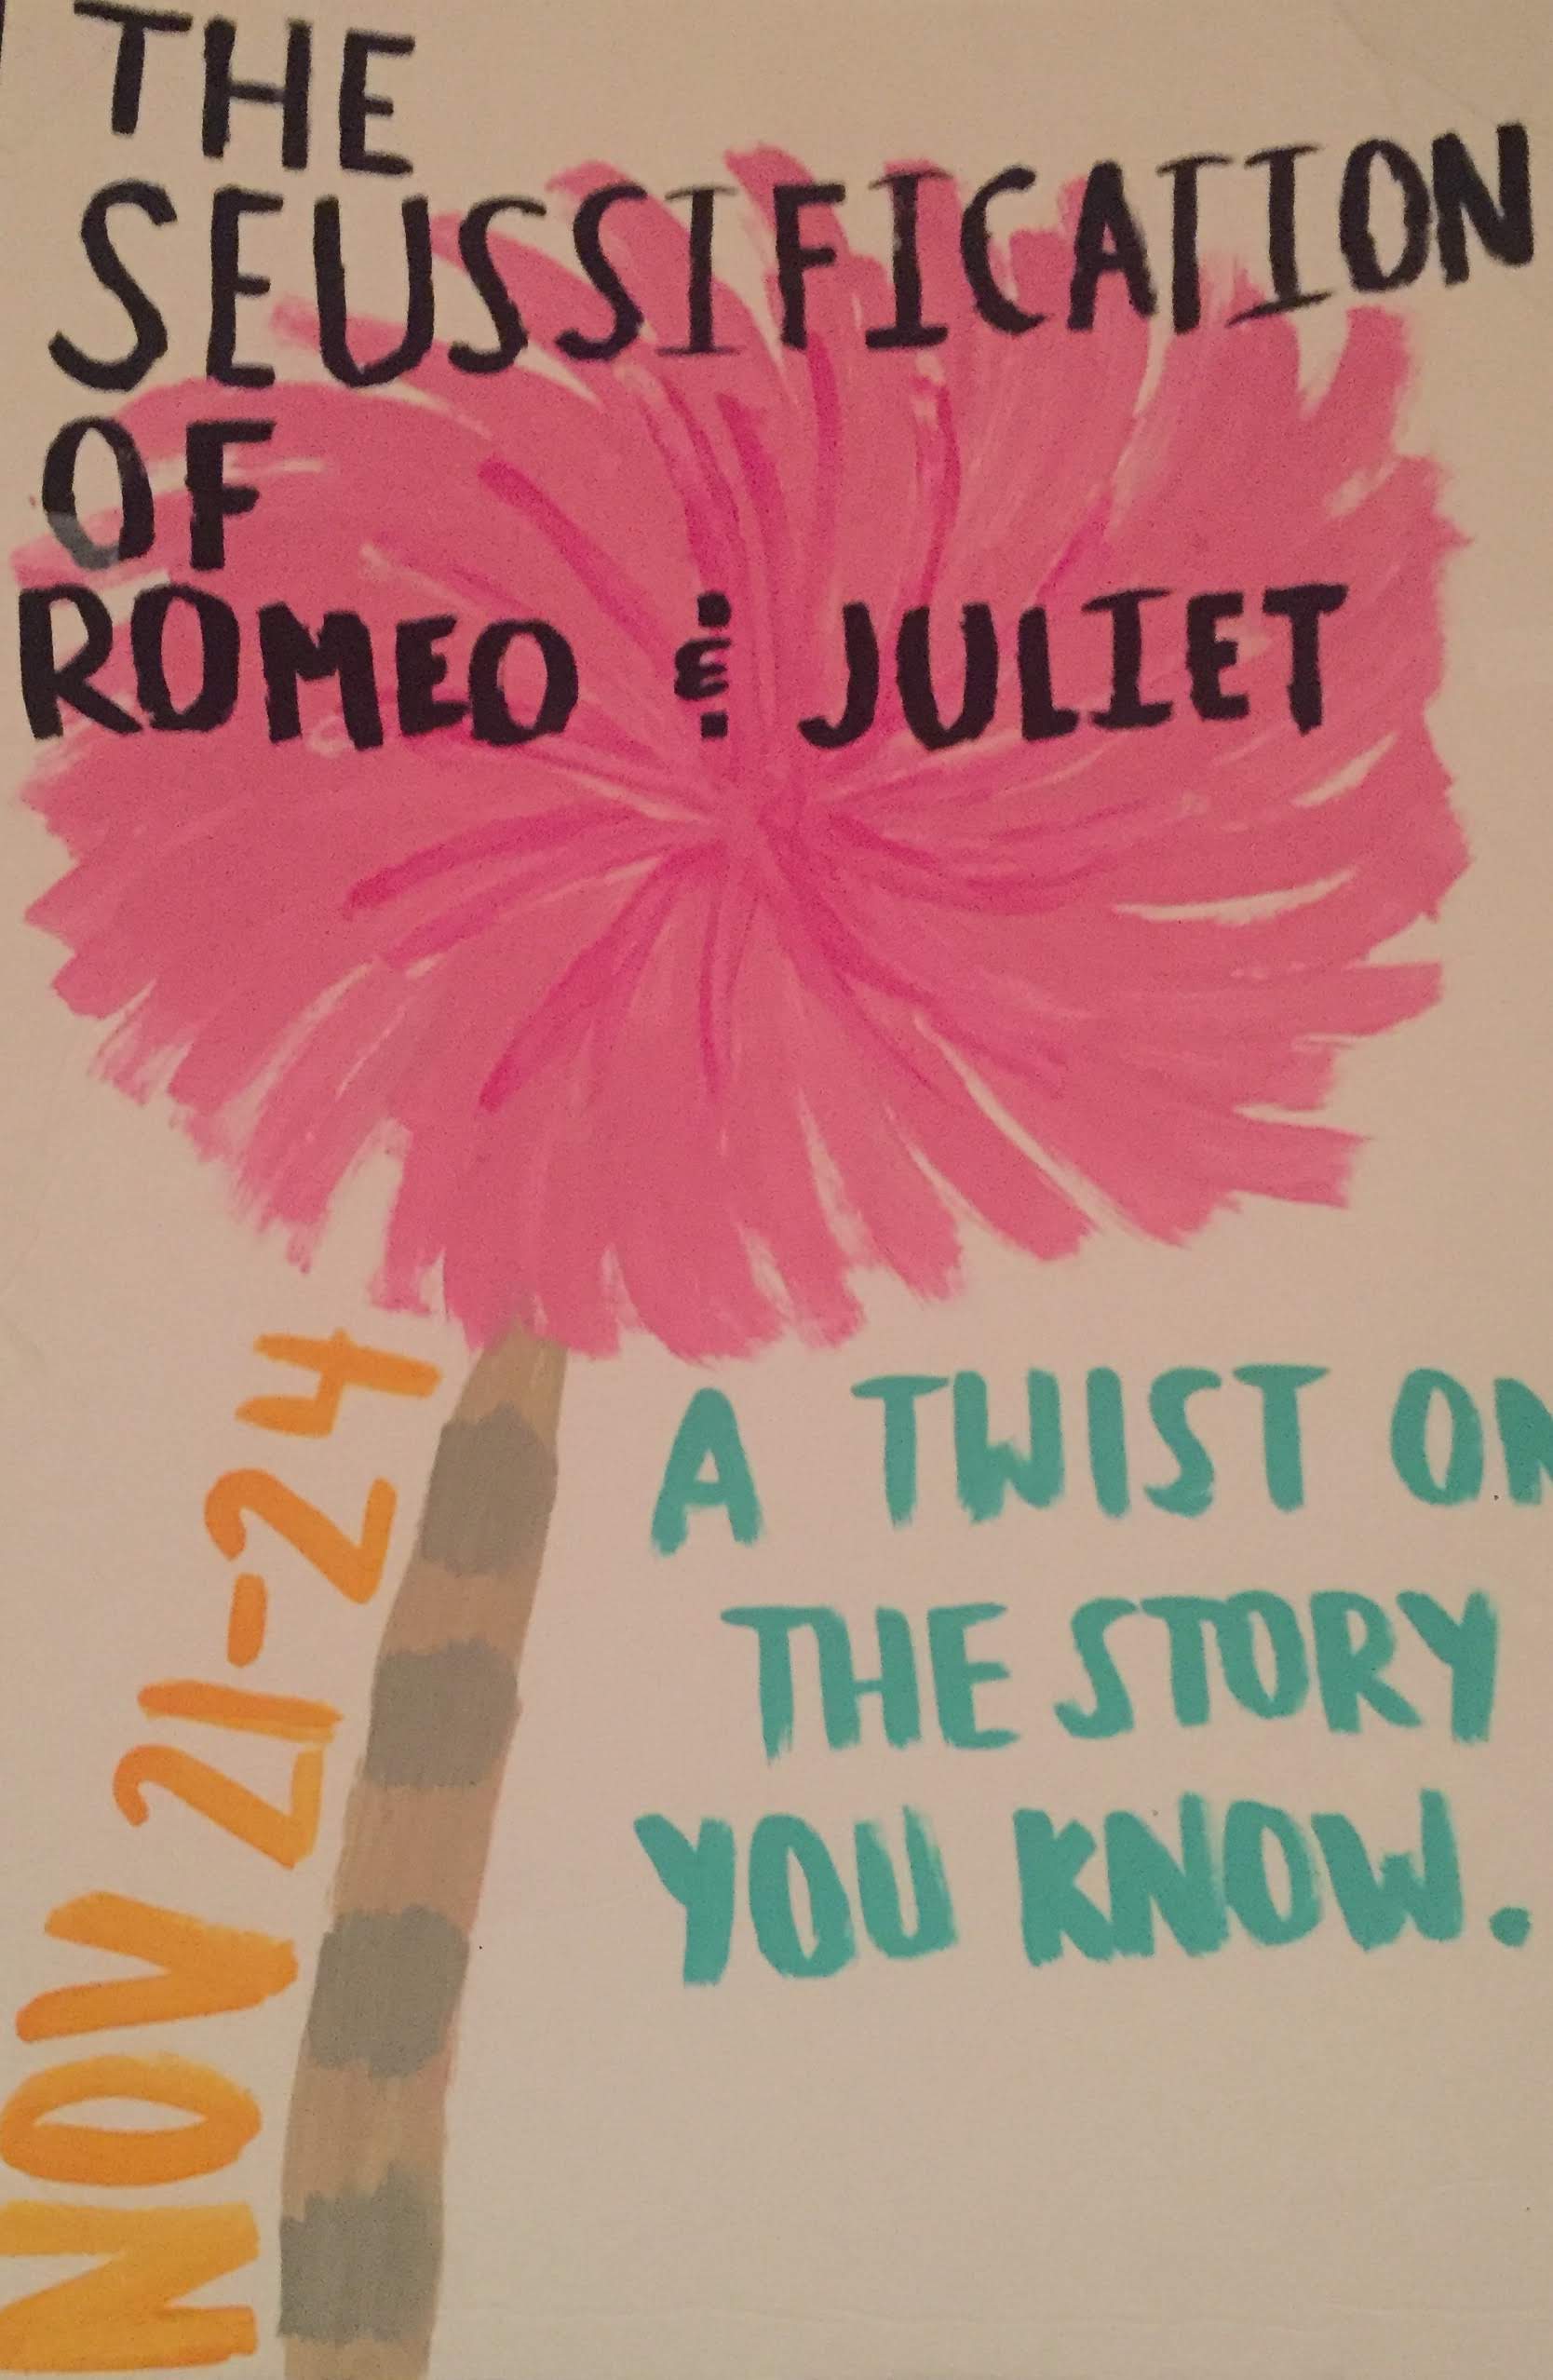 THE
SEUSSIFICATION
OF
ROMEO & JULIET
NOV 21-24
A TWIST ON
THE STORY
YOU KNOW.